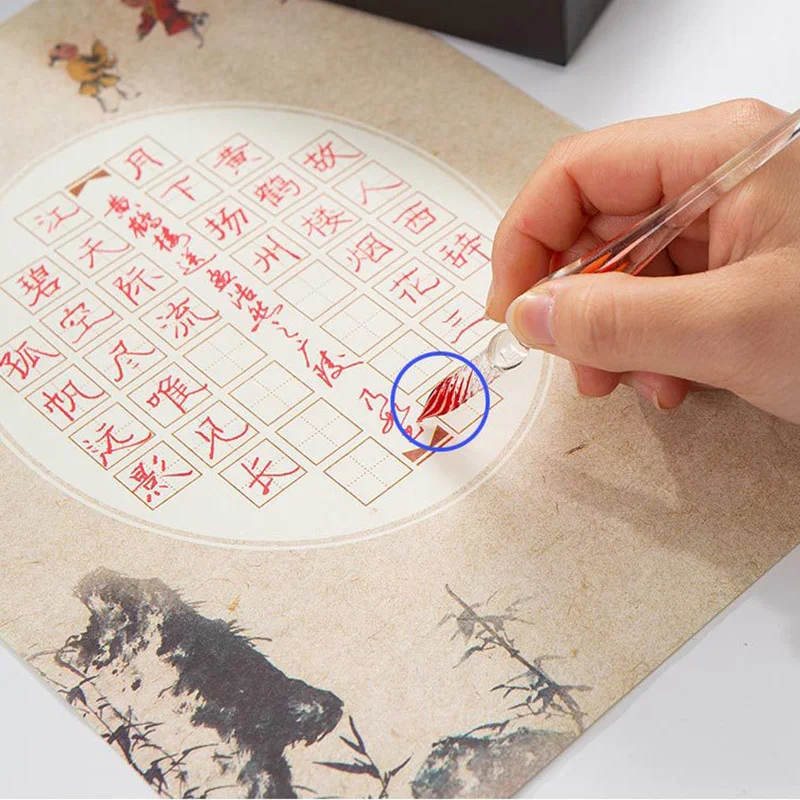 故人西辞
黄鹤楼烟花三
月下扬州
孤帆远影
碧空尽唯见长
江天际流
黄鹤楼送孟浩然之广陵